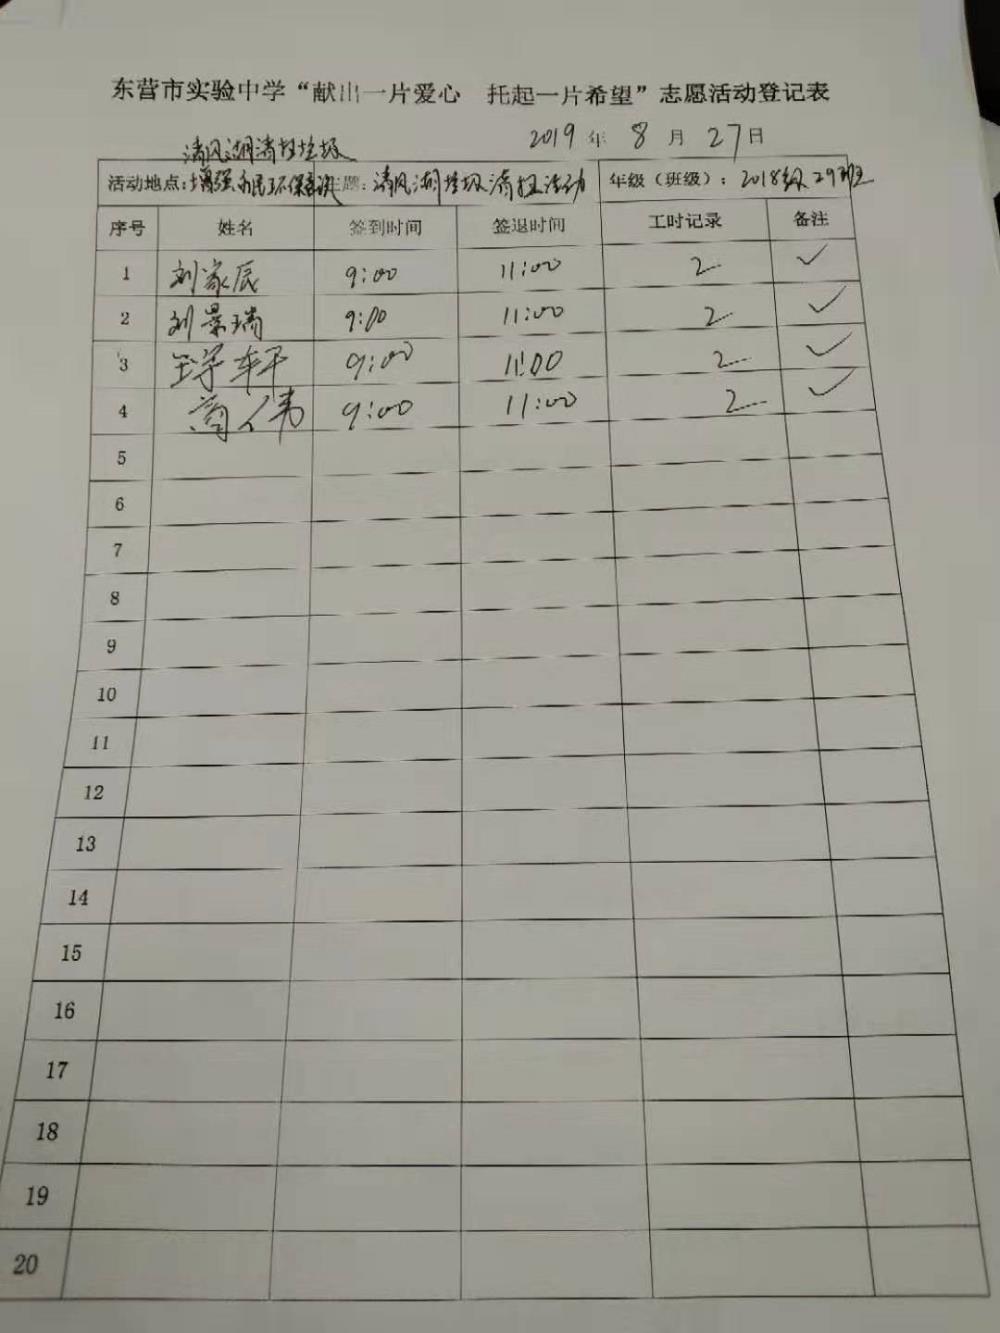 东营市实验中学“献出一片爱心 托起一片希望”志愿活动登记表
2019 年 8 月 27 日
清风湖清扫垃圾
活动地点: 增强市民环保意识 主题: 清风湖垃圾清扫活动 年级（班级）: 2018级29班
序号 姓名 签到时间 签退时间 工时记录 备注
1 刘家辰 9:00 11:00 2 ✓
2 刘景瑞 9:00 11:00 2 ✓
3 王宇轩 9:00 11:00 2 ✓
4 商人伟 9:00 11:00 2 ✓
5
6
7
8
9
10
11
12
13
14
15
16
17
18
19
20